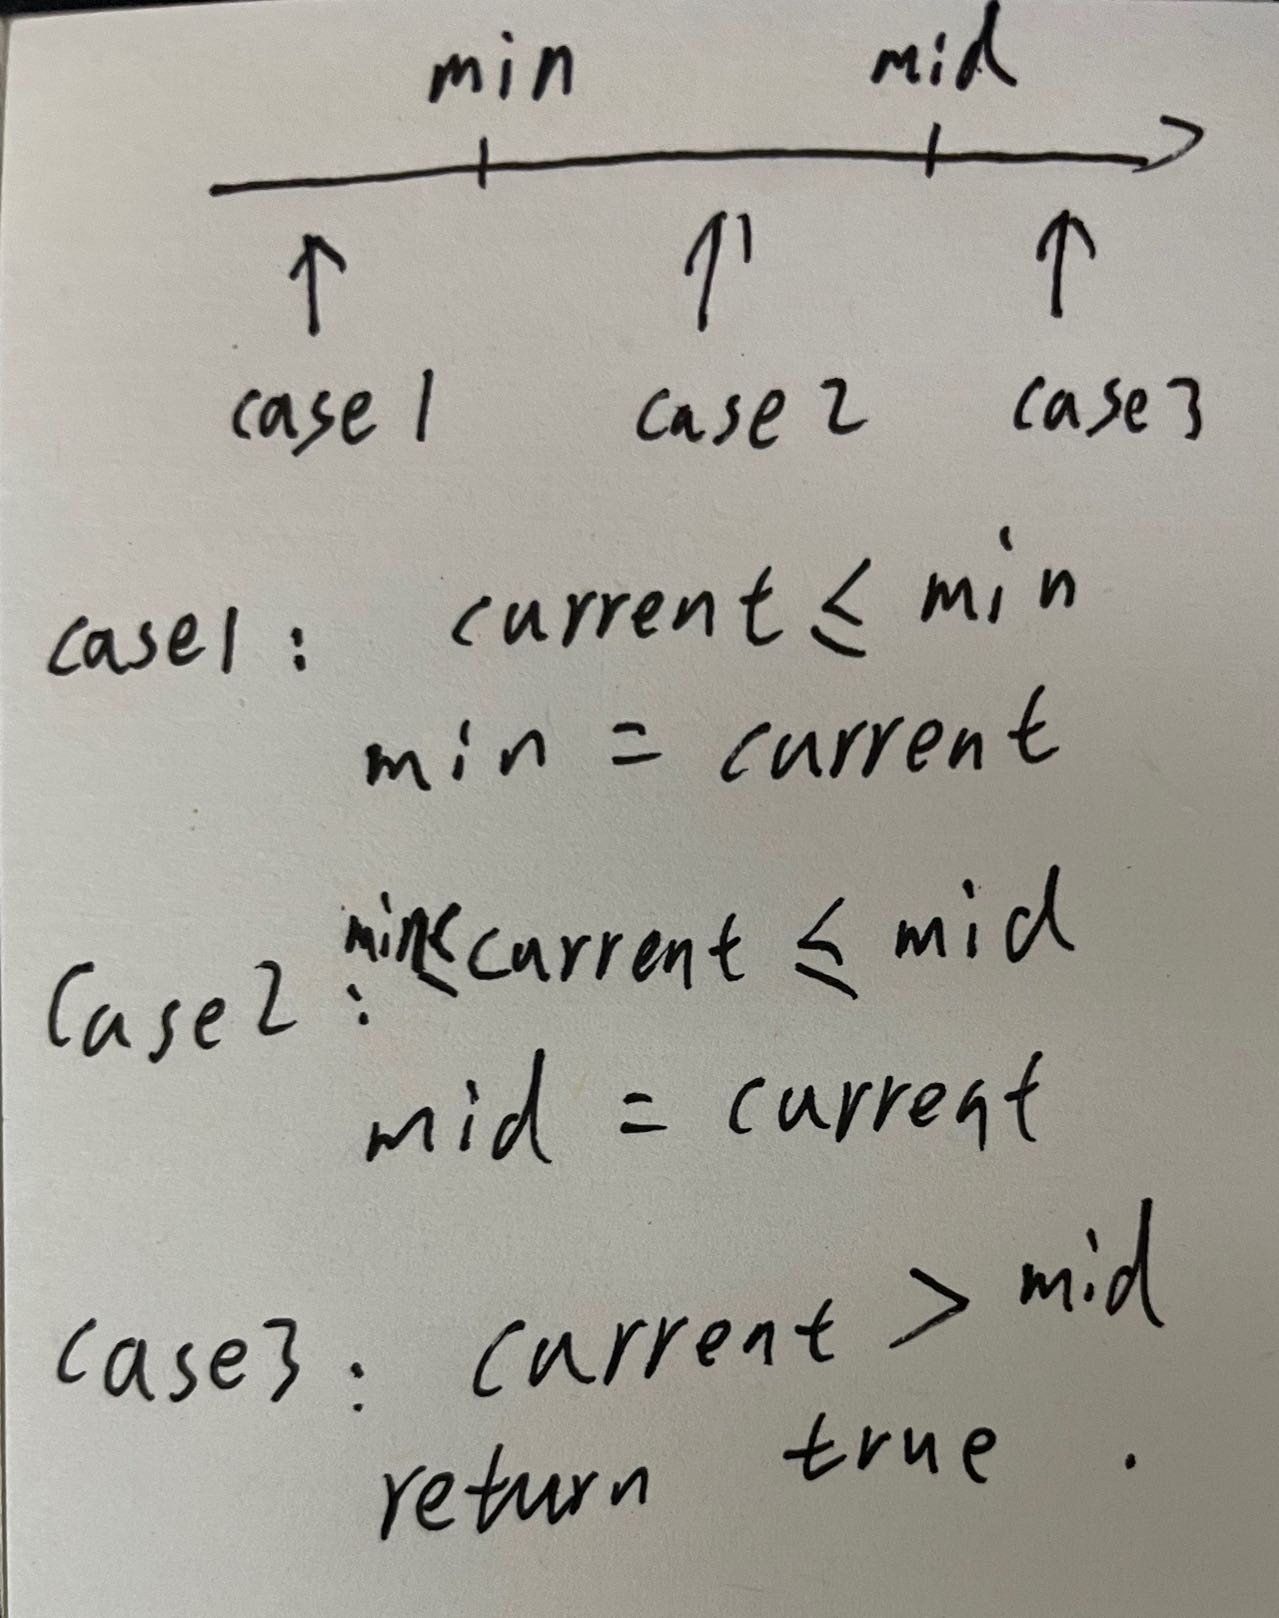 min mid
case 1 case 2 case 3
case1: current ≤ min
min = current
Case2: min≤current ≤ mid
mid = current
case3: current > mid
return true.